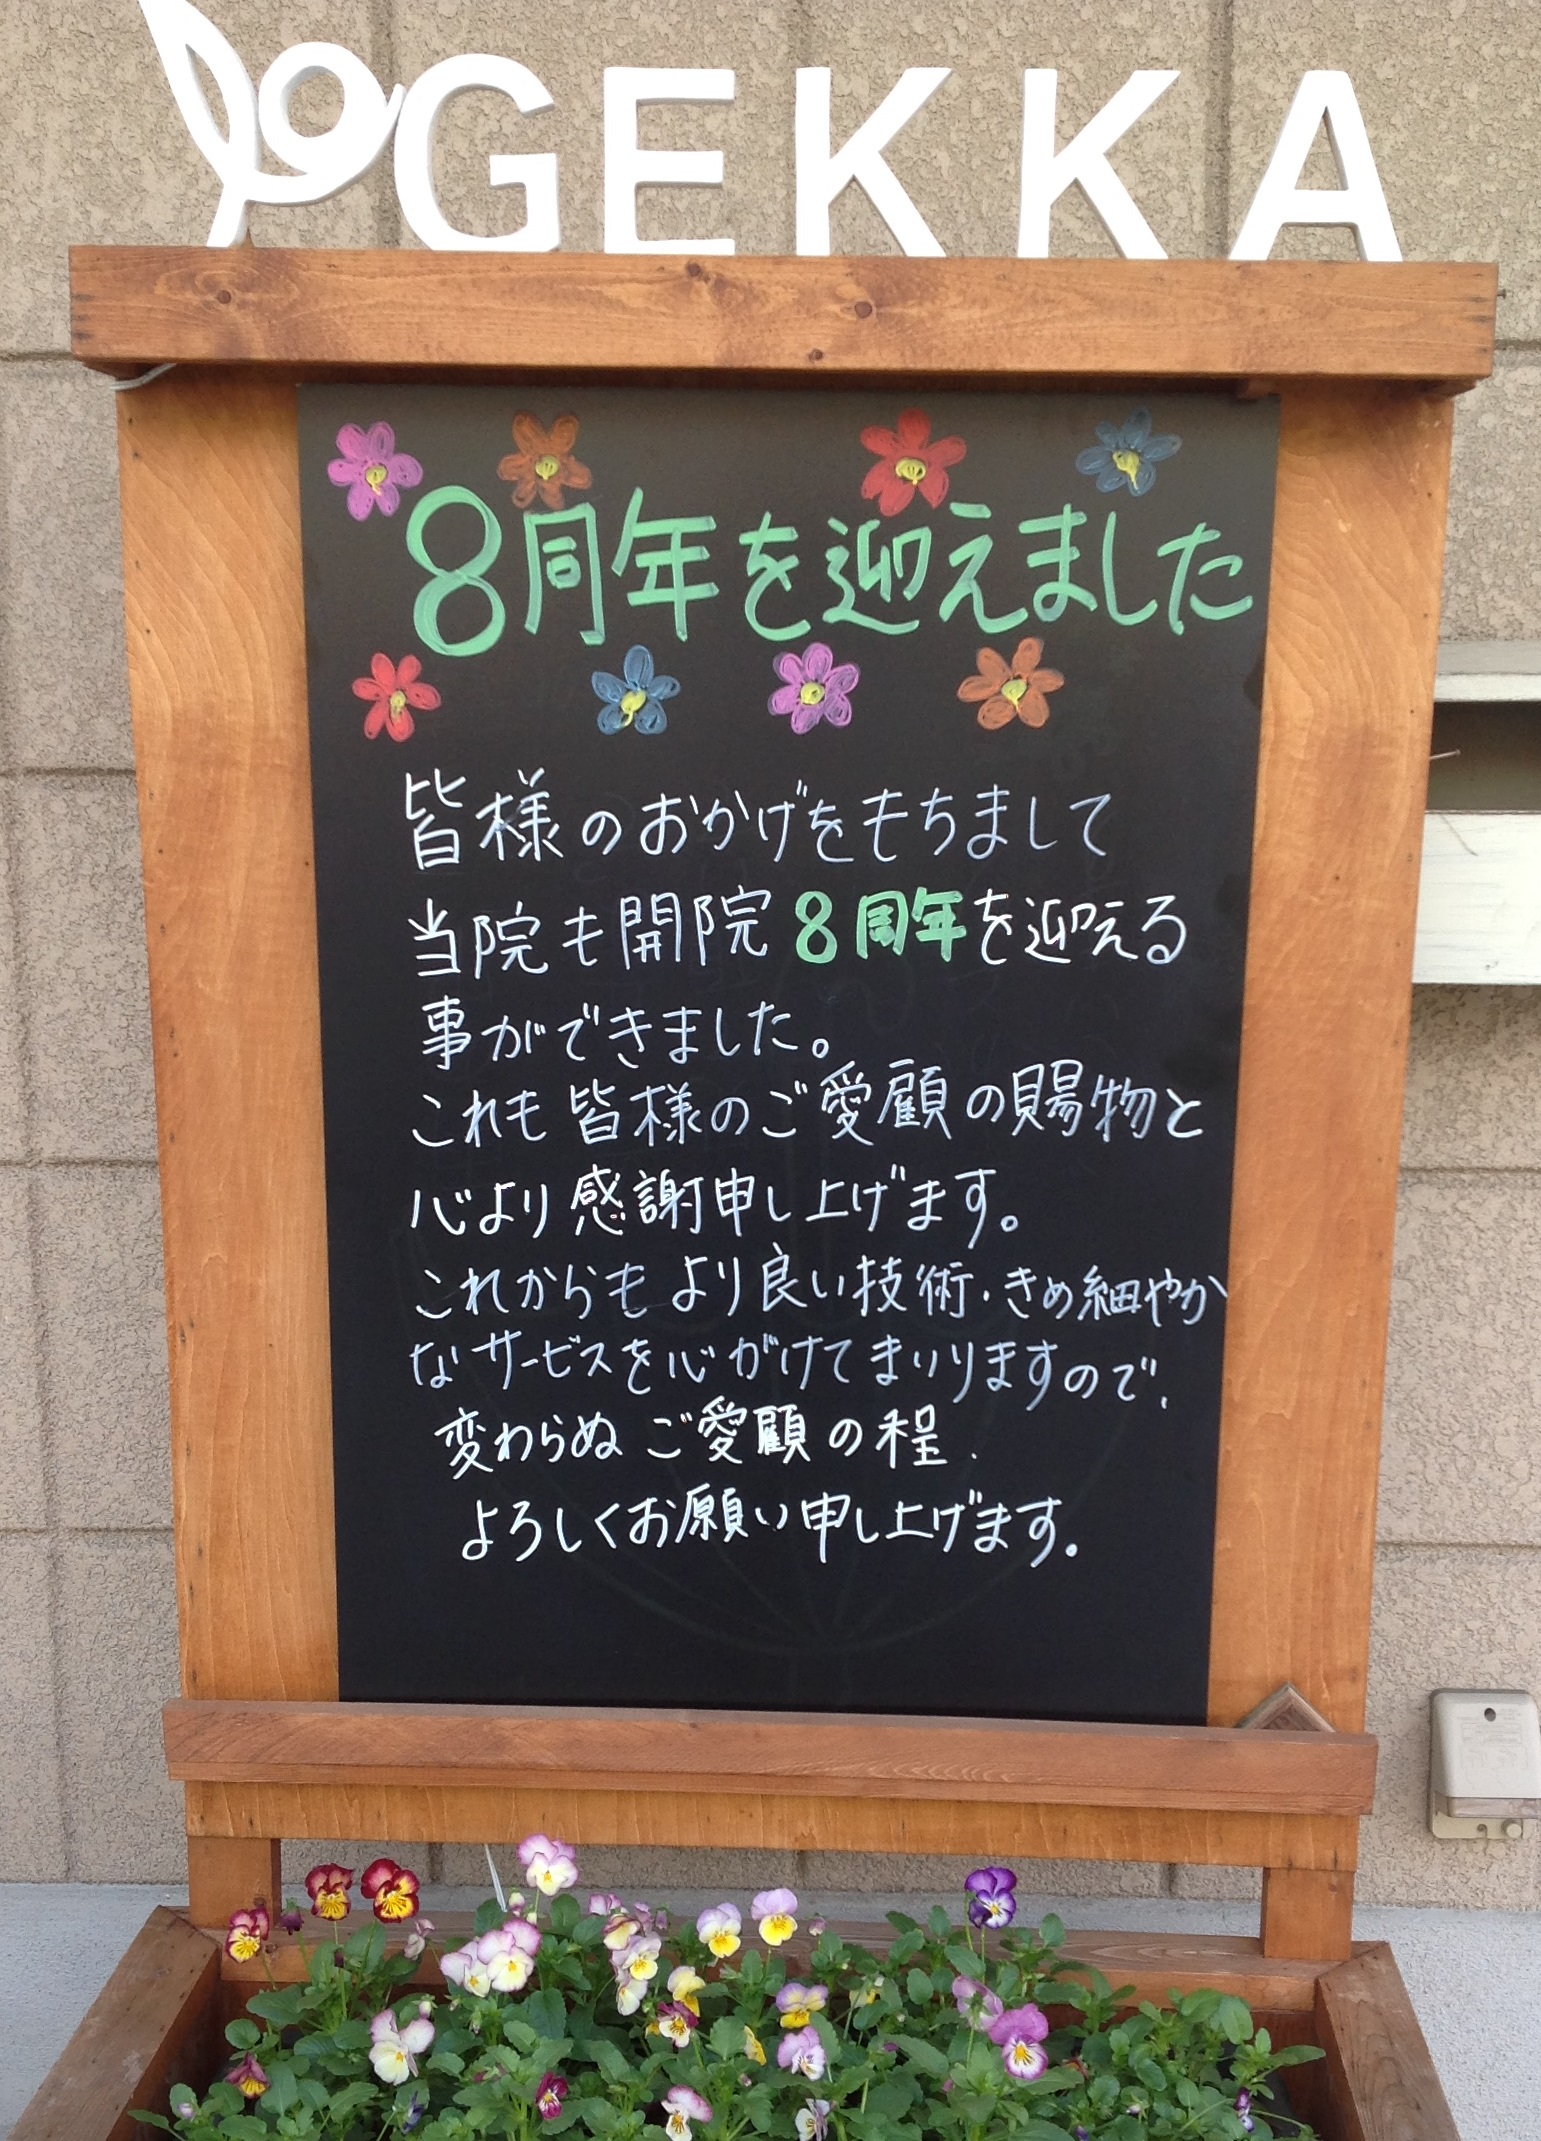 GEKKA
8周年を迎えました
皆様のおかげをもちまして
当院も開院8周年を迎える
事ができました。
これも皆様のご愛顧の賜物と
心より感謝申し上げます。
これからもより良い技術・きめ細やか
なサービスを心がけてまいりますので、
変わらぬご愛顧の程、
よろしくお願い申し上げます。